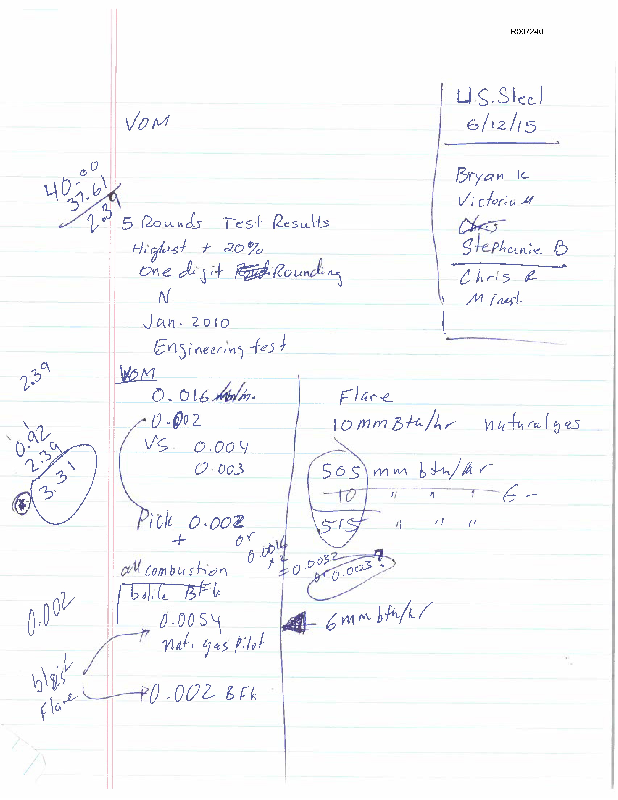 U.S. Steel
6/12/15
VOM
Bryan K
Victoria M
Stephanie B
Chris R
40.00
37.61
2.39
5 Rounds Test Results
Highest + 20%
One digit Rounding
N
Jan. 2010
Engineering test
2.39
VOM
0.016
0.002
VS. 0.004
0.003
0.92
2.39
3.31
Pick 0.002
+ or
0.0016
x 2
= 0.0032
or 0.0023?
all combustion
0.0054
Nat. gas Pilot
0.002
blast
Flare
0.002 BFG
Flare
10 mmBtu/hr natural gas
505 mm btu/hr
10 " " "
515 " " "
6 mm btu/hr